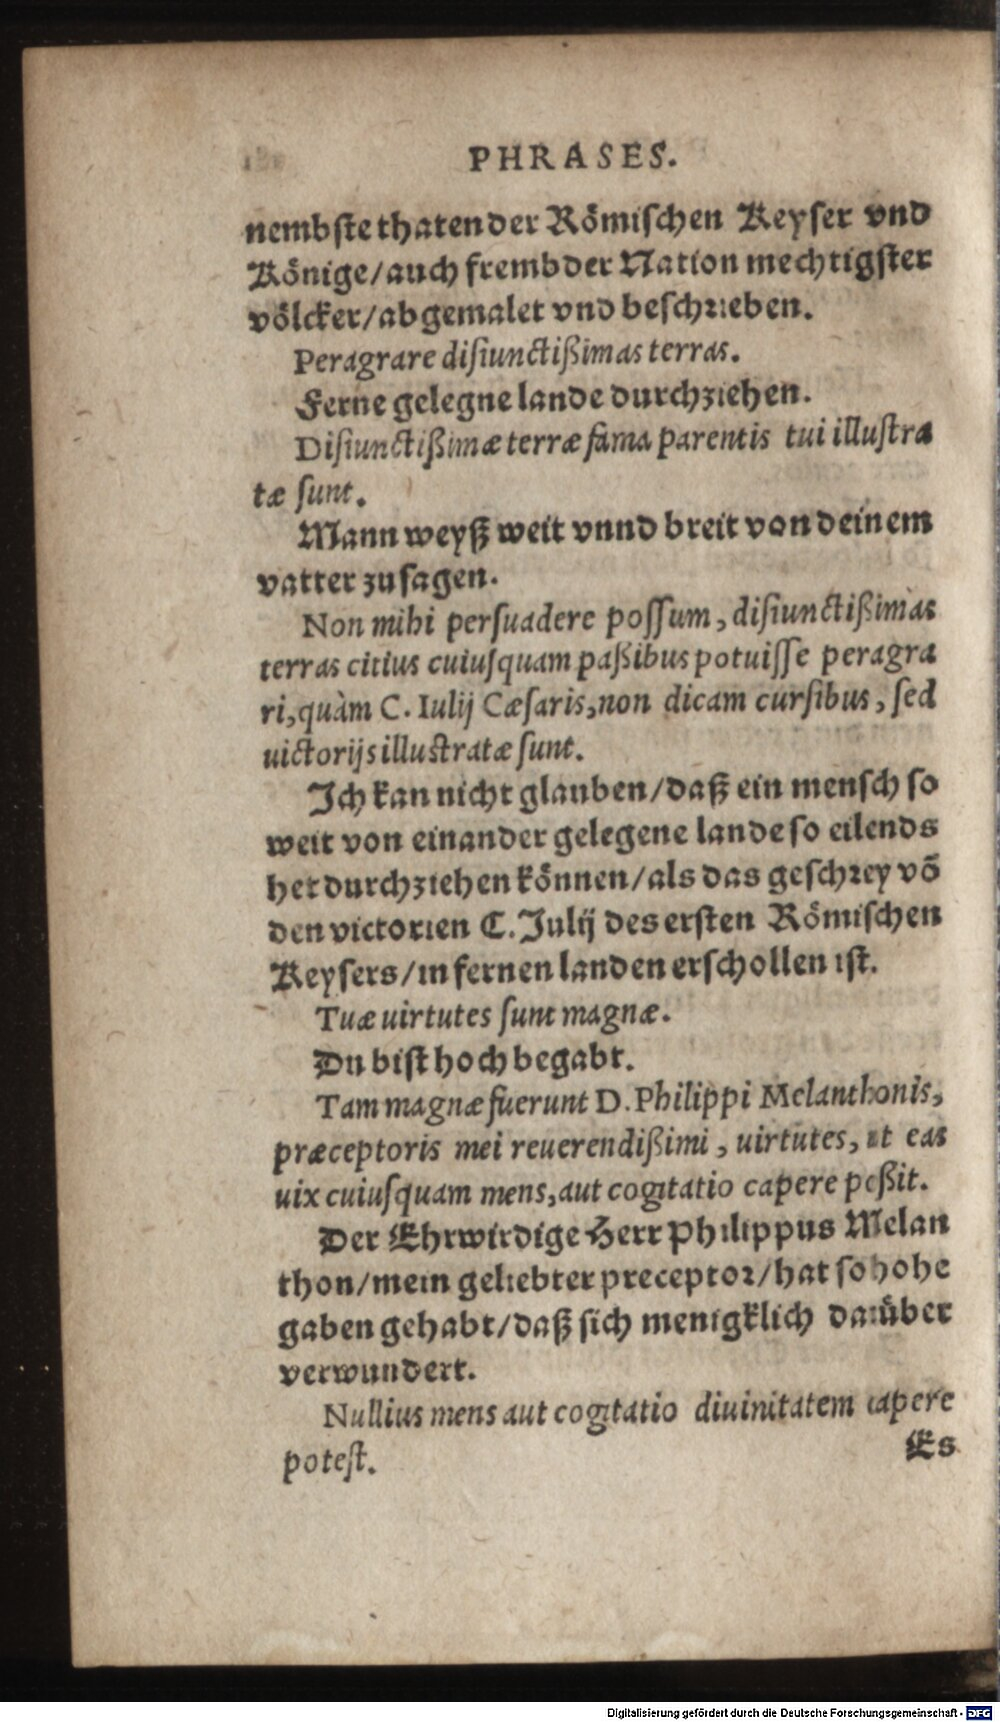 PHRASES.
nembste thaten der Römischen Keyser vnd
Könige/auch frembder Nation mechtigster
völcker/abgemalet vnd beschrieben.
Peragrare disiunctißimas terras.
Ferne gelegne lande durchziehen.
Disiunctißimæ terræ fama parentis tui illustra
tæ sunt.
Mann weyß weit vnnd breit von deinem
vatter zu sagen.
Non mihi persuadere possum, disiunctißimas
terras citius cuiusquam paßibus potuisse peragra
ri, quàm C. Iulij Cæsaris, non dicam cursibus, sed
uictorijs illustratæ sunt.
Ich kan nicht glauben/daß ein mensch so
weit von einander gelegene lande so eilends
het durchziehen können/als das geschrey võ
den victorien C. Julij des ersten Römischen
Keysers/in fernen landen erschollen ist.
Tuæ uirtutes sunt magnæ.
Du bist hoch begabt.
Tam magnæ fuerunt D. Philippi Melanthonis,
præceptoris mei reuerendißimi, uirtutes, ut eas
uix cuiusquam mens, aut cogitatio capere poßit.
Der Ehrwirdige Herr Philippus Melan
thon/mein geliebter preceptor/hat so hohe
gaben gehabt/daß sich menigklich darüber
verwundert.
Nullius mens aut cogitatio diuinitatem capere
potest.
Es
Digitalisierung gefördert durch die Deutsche Forschungsgemeinschaft - DFG